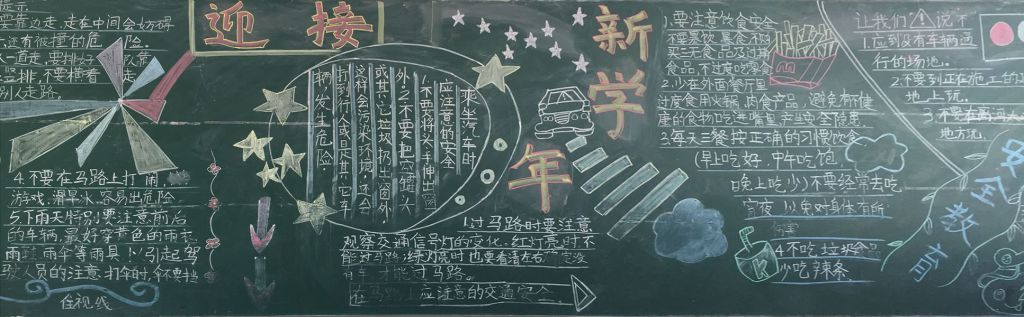 提示
要靠边走,走在中间会妨碍
还有被撞的危险。
不要横着走
别人走路。
4.不要在马路上打闹,
游戏,滑旱冰,容易出危险
5.下雨天特别要注意前后
的车辆,最好穿黄色的雨衣
雨鞋,雨伞等雨具,引起驾
驶人员的注意,打伞时,伞不要挡
住视线
迎接
新学年
乘坐汽车时
应注意的安全
1.不要将头手伸出窗
外.2.不要把罐头
或其它垃圾扔出窗外
这样会污染环境,还会
打到行人或是其它车
辆,发生危险.
1.过马路时要注意
观察交通信号灯的变化.红灯亮时不
能过马路.绿灯亮时也要看清左右
才能过马路。
在马路上应注意的交通安全
1.要注意饮食安全
不要暴饮暴食不购
买三无食品及过期
食品,不过度吃零食
2.少在外面餐厅里
过度食用火锅,肉食产品,避免有健
康的食物吃进嘴里产生安全隐患
3.每天三餐按正确的习惯饮食
(早上吃好,中午吃饱,
晚上吃少)不要经常去吃
宵夜,以免对身体有所
伤害
4.不吃垃圾食品
少吃辣条
让我们 说不
1.应到没有车辆通
行的场地。
2.不要到正在施工的
地上玩。
3.不要在离马
地方玩
安全教育